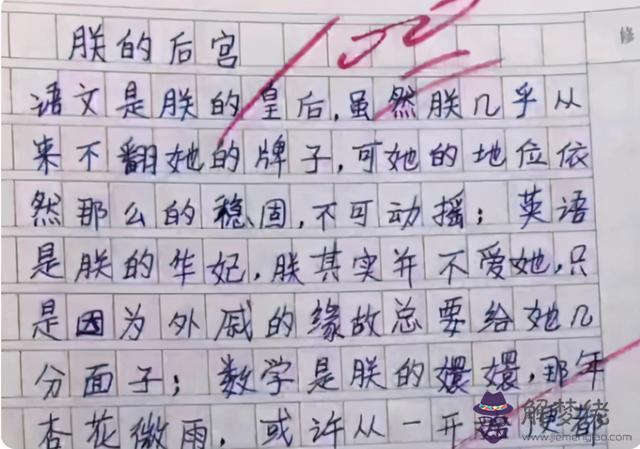 朕的后宫
修
语文是朕的皇后,虽然朕几乎从
来不翻她的牌子,可她的地位依
然那么的稳固,不可动摇;英语
是朕的华妃,朕其实并不爱她,只
是因为外戚的缘故总要给她几
分面子;数学是朕的嬛嬛,那年
杏花微雨,或许从一开始便都
解梦佬
www.jiemenglao.com